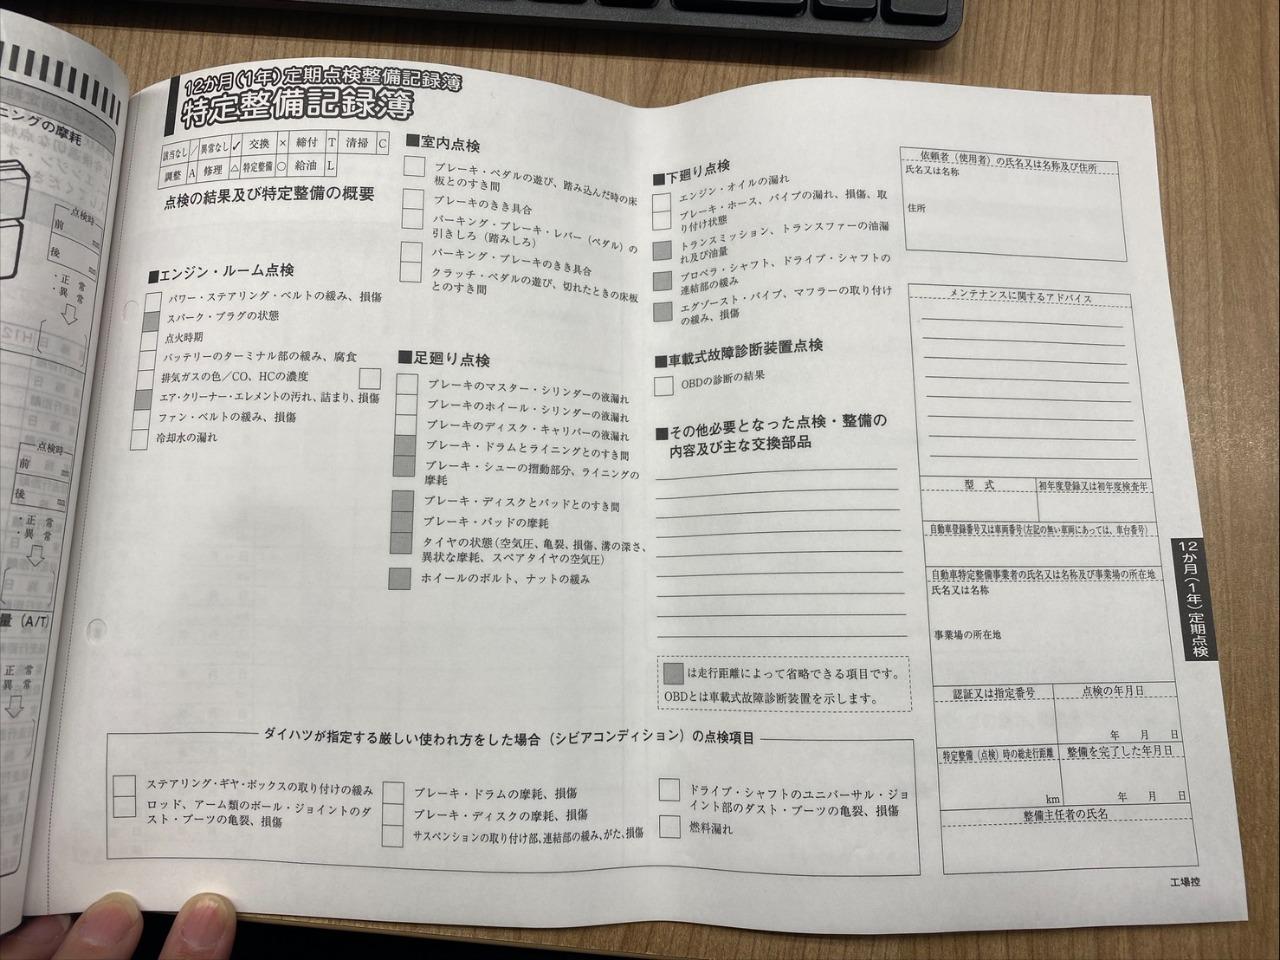 12か月(1年)定期点検整備記録簿
特定整備記録簿
該当なし / 異常なし ✓ 交換 × 締付 T 清掃 C
調整 A 修理 △ 特定整備 ○ 給油 L
点検の結果及び特定整備の概要
■エンジン・ルーム点検
パワー・ステアリング・ベルトの緩み、損傷
スパーク・プラグの状態
点火時期
バッテリーのターミナル部の緩み、腐食
排気ガスの色／CO、HCの濃度
エア・クリーナー・エレメントの汚れ、詰まり、損傷
ファン・ベルトの緩み、損傷
冷却水の漏れ
■室内点検
ブレーキ・ペダルの遊び、踏み込んだ時の床
板とのすき間
ブレーキのきき具合
パーキング・ブレーキ・レバー（ペダル）の
引きしろ（踏みしろ）
パーキング・ブレーキのきき具合
クラッチ・ペダルの遊び、切れたときの床板
とのすき間
■足廻り点検
ブレーキのマスター・シリンダーの液漏れ
ブレーキのホイール・シリンダーの液漏れ
ブレーキのディスク・キャリパーの液漏れ
ブレーキ・ドラムとライニングとのすき間
ブレーキ・シューの摺動部分、ライニングの
摩耗
ブレーキ・ディスクとパッドとのすき間
ブレーキ・パッドの摩耗
タイヤの状態（空気圧、亀裂、損傷、溝の深さ、
異状な摩耗、スペアタイヤの空気圧）
ホイールのボルト、ナットの緩み
■下廻り点検
エンジン・オイルの漏れ
ブレーキ・ホース、パイプの漏れ、損傷、取
り付け状態
トランスミッション、トランスファーの油漏
れ及び油量
プロペラ・シャフト、ドライブ・シャフトの
連結部の緩み
エグゾースト・パイプ、マフラーの取り付け
の緩み、損傷
■車載式故障診断装置点検
OBDの診断の結果
■その他必要となった点検・整備の
内容及び主な交換部品
は走行距離によって省略できる項目です。
OBDとは車載式故障診断装置を示します。
依頼者（使用者）の氏名又は名称及び住所
氏名又は名称
住所
メンテナンスに関するアドバイス
型　式 初年度登録又は初年度検査年
自動車登録番号又は車両番号(左記の無い車両にあっては、車台番号)
自動車特定整備事業者の氏名又は名称及び事業場の所在地
氏名又は名称
事業場の所在地
認証又は指定番号 点検の年月日
年　月　日
特定整備（点検）時の総走行距離 整備を完了した年月日
km 年　月　日
整備主任者の氏名
工場控
12か月(1年)定期点検
ダイハツが指定する厳しい使われ方をした場合（シビアコンディション）の点検項目
ステアリング・ギヤ・ボックスの取り付けの緩み
ロッド、アーム類のボール・ジョイントのダ
スト・ブーツの亀裂、損傷
ブレーキ・ドラムの摩耗、損傷
ブレーキ・ディスクの摩耗、損傷
サスペンションの取り付け部、連結部の緩み、がた、損傷
ドライブ・シャフトのユニバーサル・ジョ
イント部のダスト・ブーツの亀裂、損傷
燃料漏れ
ニングの摩耗
点検時
前 mm
後 mm
・正　常
・異　常
点検時
前 mm
後 mm
・正　常
・異　常
量（A/T）
正　常
異　常